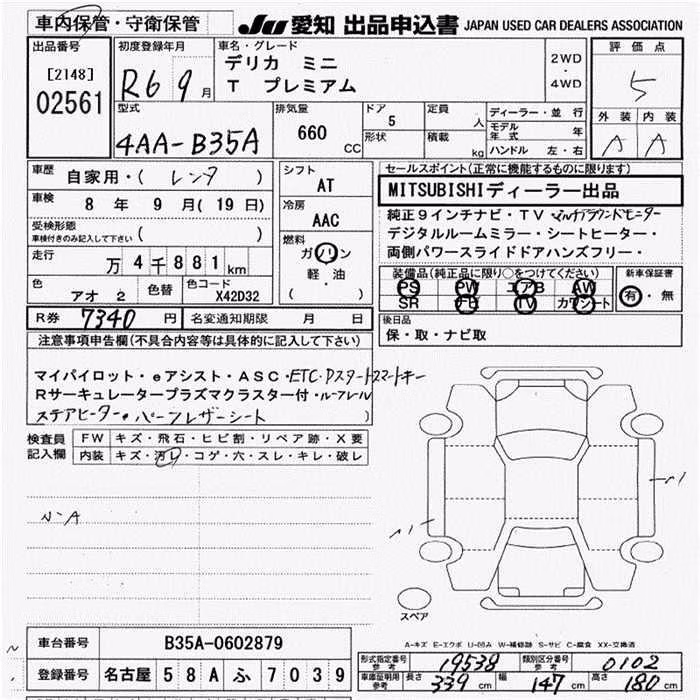 車内保管・守衛保管
JU 愛知 出品申込書 JAPAN USED CAR DEALERS ASSOCIATION
出品番号
[2148]
02561
初度登録年月
R6 9月
車名・グレード
デリカ ミニ
T プレミアム
2WD
・
4WD
評価点
5
外装 内装
A A
型式
4AA-B35A
排気量
660 CC
ドア
5
形状
定員
人
積載
kg
ディーラー・並行
モデル年式 年
ハンドル 左・右
車歴 自家用・(レンタ)
車検 8年 9月(19日)
受検形態
車検付きのみ記入して下さい ( )
走行 万4千881km
色 アオ 2
色替
色コード X42D32
シフト
AT
冷房
AAC
燃料
ガソリン
軽・油
( )
セールスポイント(正常に機能するものに限ります)
MITSUBISHIディーラー出品
純正9インチナビ・TV マルチアラウンドモニター
デジタルルームミラー・シートヒーター・
両側パワースライドドアハンズフリー・
装備品(純正品に限り○をつけてください)
PS PW エアB AW
SR ナビ TV カワシート
新車保証書
有・無
R券 7340円
名変通知期限 月 日
後日品
保・取・ナビ取
注意事項申告欄(不具合内容等は具体的に記入して下さい)
マイパイロット・eアシスト・ASC・ETC・Pスタートスマートキー
Rサーキュレータープラズマクラスター付・ルーフレール
ステアヒーター・パーフレザーシート
検査員記入欄
FW キズ・飛石・ヒビ割・リペア跡・X要
内装 キズ・汚レ・コゲ・穴・スレ・キレ・破レ
N-A
スペア
A-キズ E-エクボ U-凹み W-補修跡 S-サビ C-腐食 XX-交換済
車台番号 B35A-0602879
登録番号 名古屋 58A ふ 7039
形式指定番号 参考 19538
類別区分番号 参考 0102
車庫証明用 参考 長さ 339cm 幅 147cm 高さ 180cm